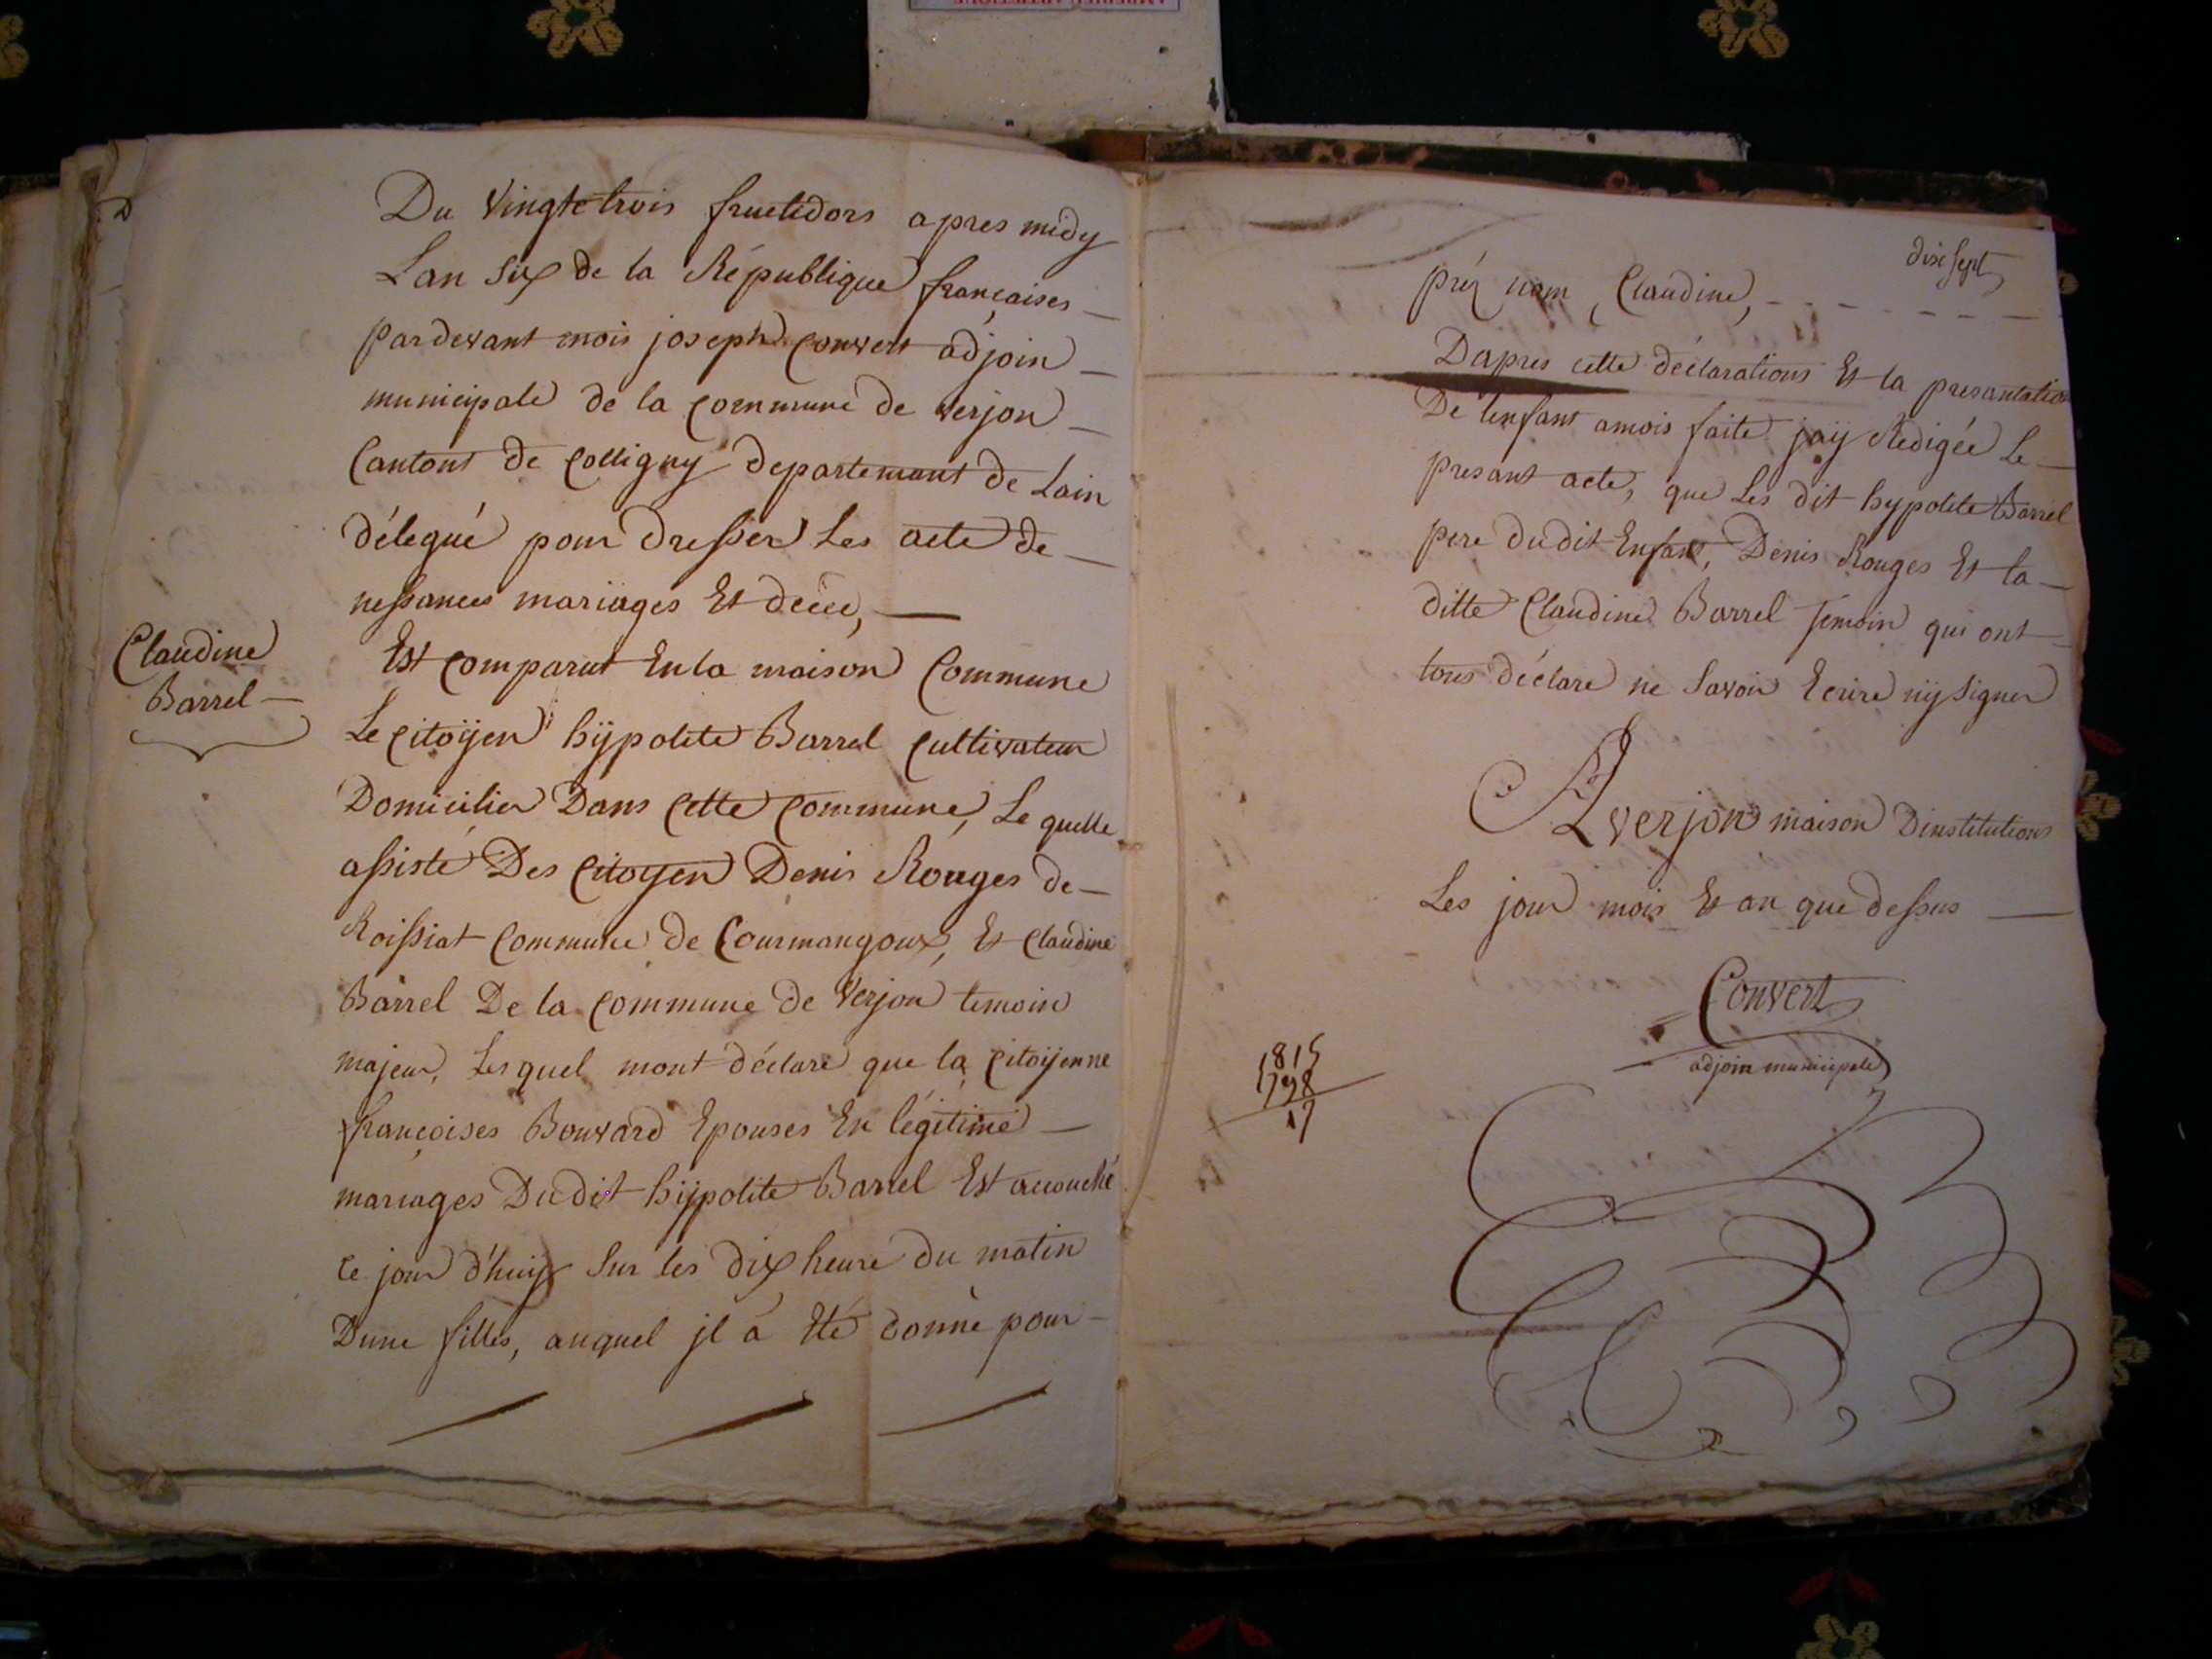 Du vingtetrois fructidors apres midy
Lan six de la République françaises
pardevant mois joseph Convert adjoin
municipale de la Commune de verjon
Cantons de Colligny departemant de Lain
délegué pour dresser Les acte de
nessances mariages Et décée,
Claudine
Barrel
Est Comparut En la maison Commune
Le Citoÿen hÿpolite Barrel Cultivateur
Domicilier Dans Cette Commune, Le quelle
assisté Des Citoyen Denis Rouges de
Roissiat Commune de Courmangoux, Et Claudine
Barrel De la Commune de Verjon temoin
majeur, Les quel mont déclaré que la Citoÿenne
françoises Bouvard Epouses En légitime
mariages Dudit hÿpolite Barrel Est accouché
ce jour d'huij sur les dix heure du matin
Dune filles, auquel jl á Eté donné pour
dix sept
pré nom, Claudine,
Dapres cette déclarations Et la presantation
De lenfant amois faite jaÿ Redigée Le
presant acte, que Les dit hypolite Barrel
pere dudit Enfant, Denis Rouges Et la
ditte Claudine Barrel temoin qui ont
tous déclaré ne savoir Ecrire nÿ signer
A verjon maison Dinstitutions
Les jour mois Et an que dessus
Convert
adjoin municipale
1815
1798
17